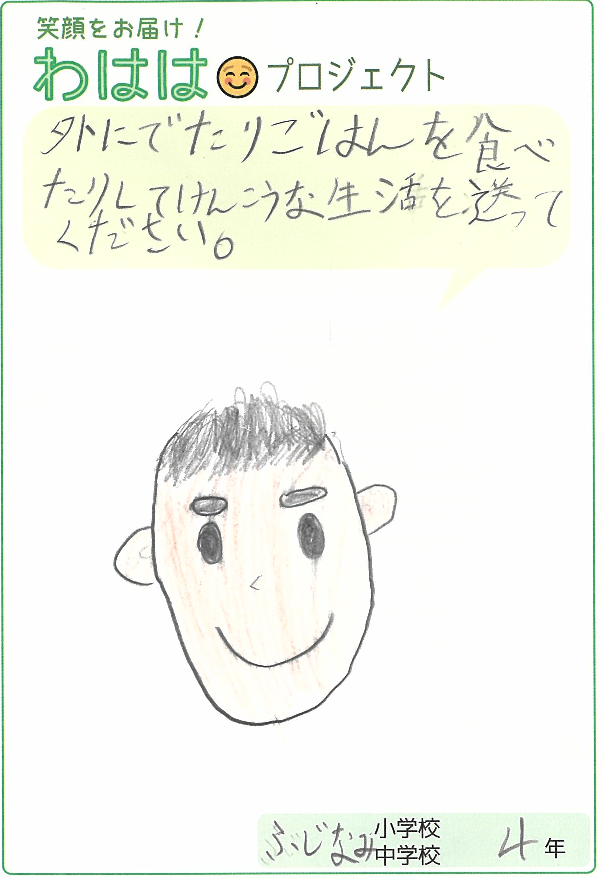 笑顔をお届け！
わははプロジェクト
外にでたりごはんを食べ
たりしてけんこうな生活を送って
ください。
ふじなみ小学校
中学校
4年